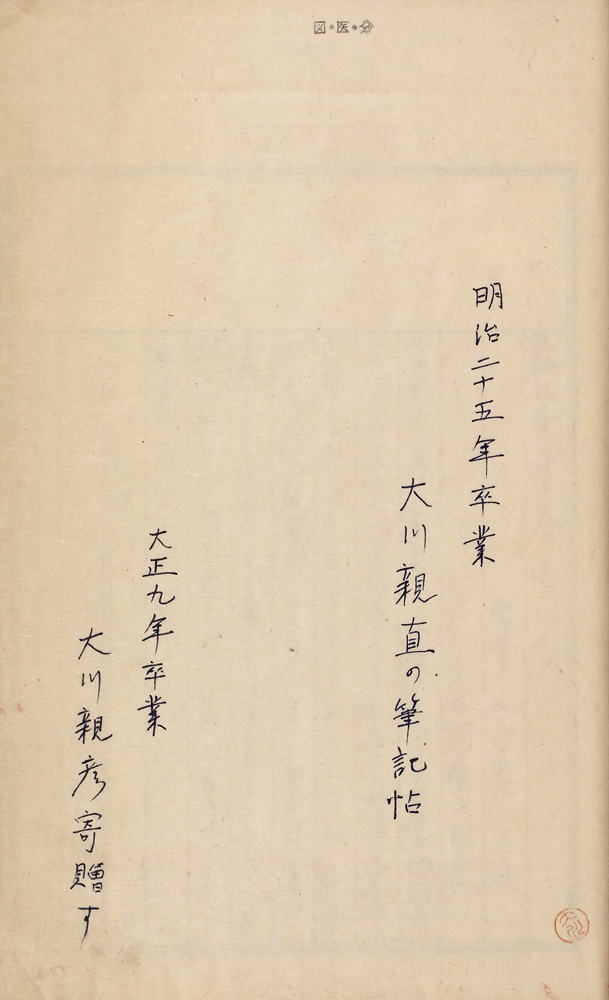 図・医・分
明治二十五年卒業
大川親直の筆記帖
大正九年卒業
大川親彦寄贈す